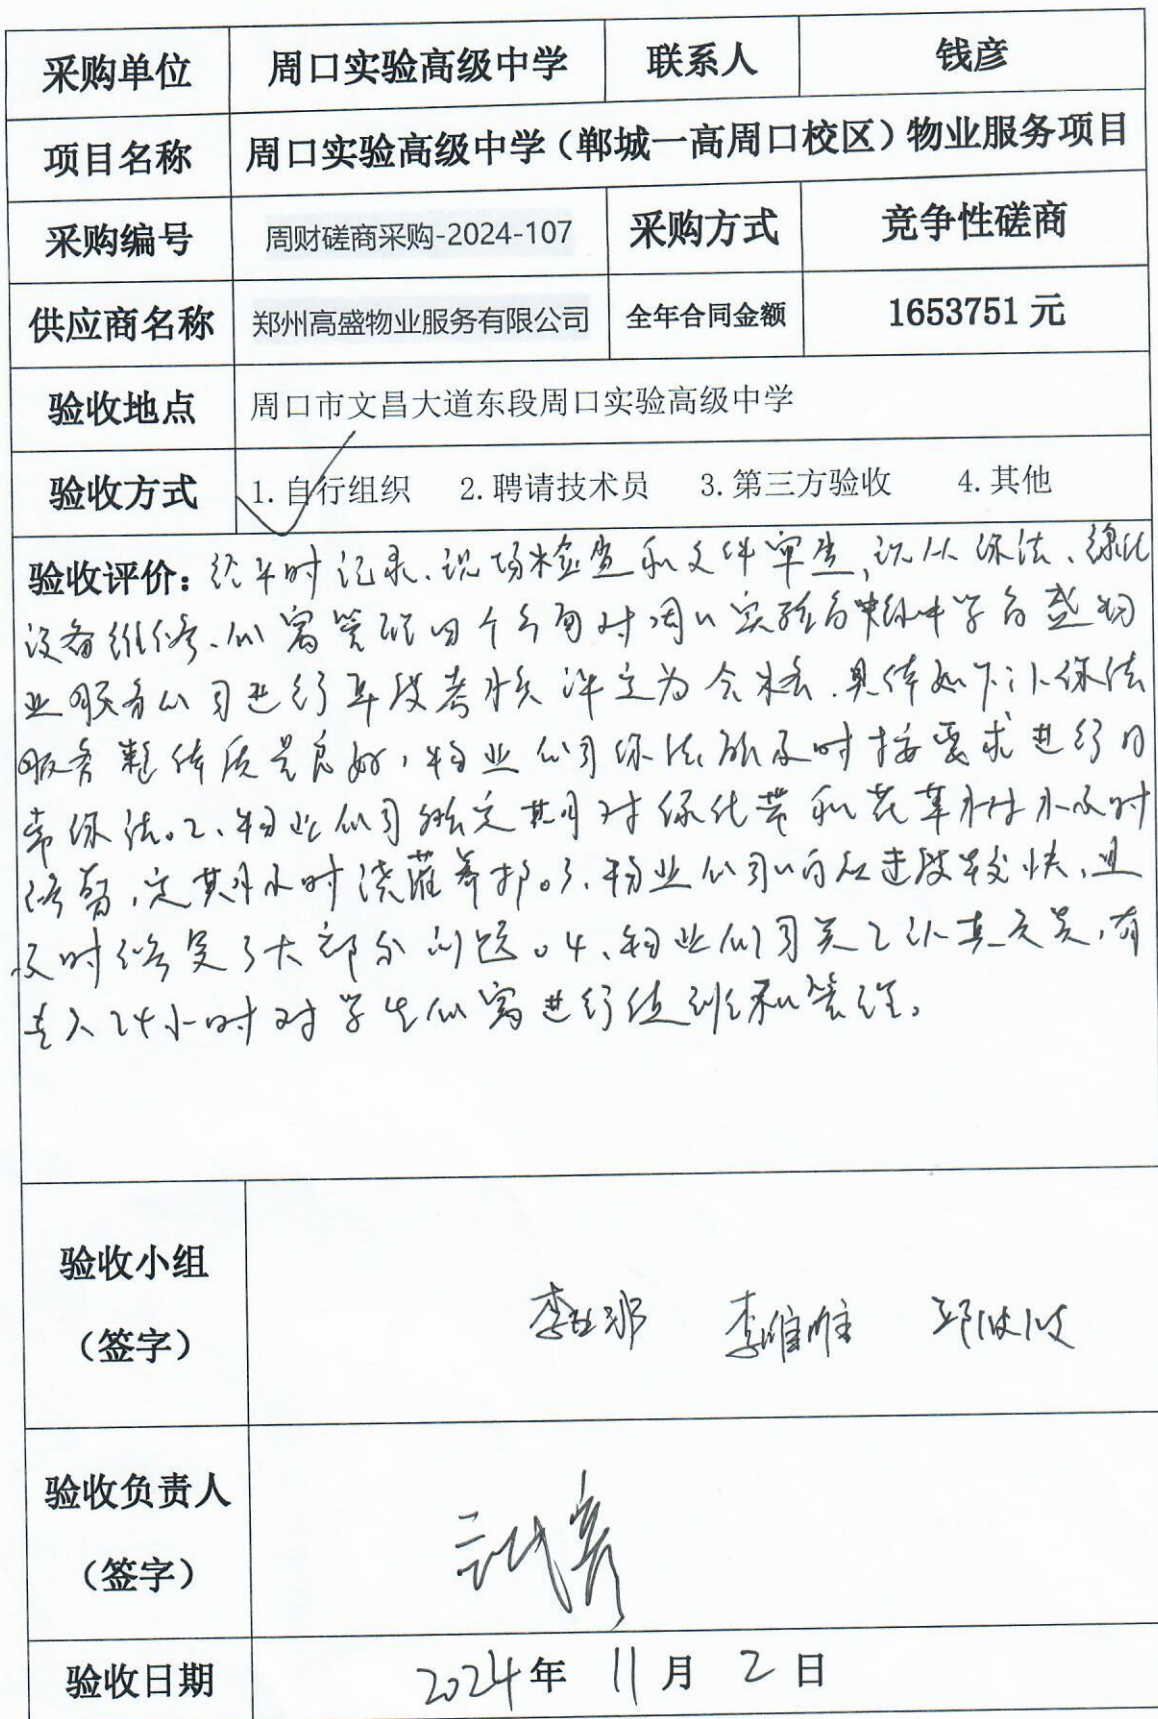 采购单位 周口实验高级中学 联系人 钱彦
项目名称 周口实验高级中学（郸城一高周口校区）物业服务项目
采购编号 周财磋商采购-2024-107 采购方式 竞争性磋商
供应商名称 郑州高盛物业服务有限公司 全年合同金额 1653751 元
验收地点 周口市文昌大道东段周口实验高级中学
验收方式 1.自行组织 2.聘请技术员 3.第三方验收 4.其他
验收评价：经平时记录、现场检查和文件审查,从保洁、绿化
设备维修、公寓管理四个方面对周口实验高级中学高盛物
业服务公司进行年度考核评定为合格.具体如下:1.保洁
服务整体质量良好,物业公司保洁能及时按要求进行日
常保洁。2、物业公司能定期对绿化带和花草树木及时
修剪,定期及时浇灌养护。3.物业公司响应速度较快,且
及时修复了大部分问题。4、物业公司员工认真负责,有
专人24小时对学生公寓进行值班和管理。
验收小组
（签字）
李维
验收负责人
（签字）
钱彦
验收日期 2024年 11月 2日